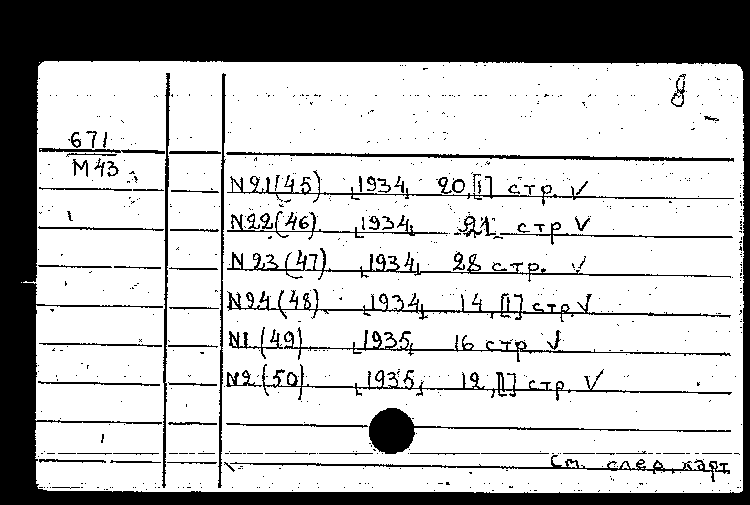 8
671
М43
N21(45) 1934, 20,[1] стр. V
N22(46) 1934, 21 стр V
N23(47) 1934, 28 стр. V
N24(48) 1934, 14,[1] стр V
N1(49) 1935, 16 стр V
N2(50) 1935, 12,[1] стр. V
См. след. карт.